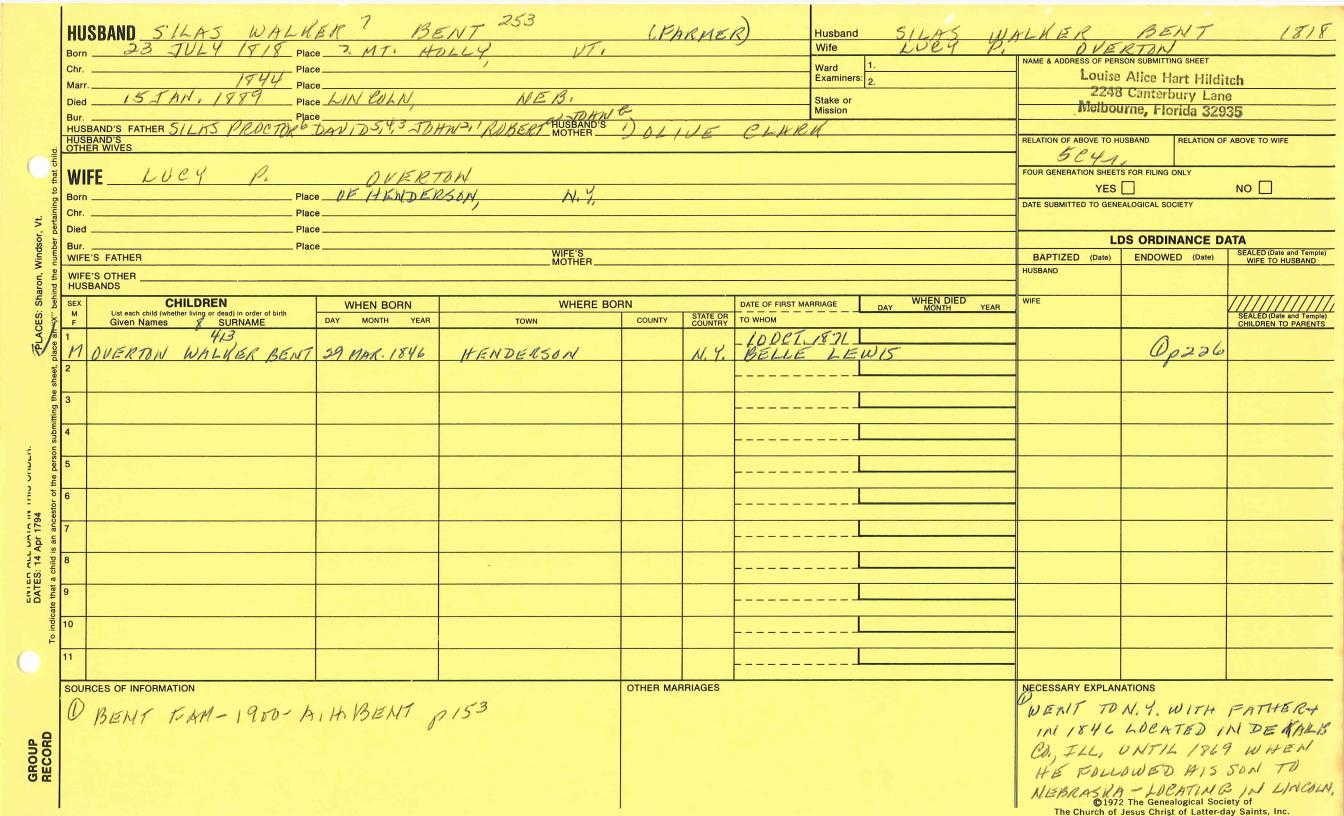 HUSBAND SILAS WALKER 7 BENT 253 (FARMER)
Born 23 JULY 1818 Place ? MT. HOLLY, VT.
Chr. Place
Marr. 1844 Place
Died 15 JAN. 1889 Place LINCOLN, NEB.
Bur. Place
HUSBAND'S FATHER SILAS PROCTOR6 DAVID5,4,3 JOHN2,1 ROBERT JOHN HUSBAND'S MOTHER 1) OLIVE CLARK
HUSBAND'S OTHER WIVES
Husband SILAS WALKER BENT 1818
Wife LUCY P. OVERTON
Ward Examiners: 1.
2.
Stake or Mission
NAME & ADDRESS OF PERSON SUBMITTING SHEET
Louise Alice Hart Hilditch
2248 Canterbury Lane
Melbourne, Florida 32935
RELATION OF ABOVE TO HUSBAND RELATION OF ABOVE TO WIFE
5C4r.
FOUR GENERATION SHEETS FOR FILING ONLY
YES NO
DATE SUBMITTED TO GENEALOGICAL SOCIETY
WIFE LUCY P. OVERTON
Born Place OF HENDERSON, N.Y.
Chr. Place
Died Place
Bur. Place
WIFE'S FATHER WIFE'S MOTHER
WIFE'S OTHER HUSBANDS
LDS ORDINANCE DATA
BAPTIZED (Date) ENDOWED (Date) SEALED (Date and Temple) WIFE TO HUSBAND
HUSBAND
WIFE
SEALED (Date and Temple) CHILDREN TO PARENTS
SEX M F
CHILDREN
List each child (whether living or dead) in order of birth
Given Names 8 SURNAME
WHEN BORN
DAY MONTH YEAR
WHERE BORN
TOWN COUNTY STATE OR COUNTRY
DATE OF FIRST MARRIAGE
TO WHOM
WHEN DIED
DAY MONTH YEAR
1 413 10 OCT. 1871
M OVERTON WALKER BENT 29 MAR. 1846 HENDERSON N.Y. BELLE LEWIS ① p226
2
3
4
5
6
7
8
9
10
11
SOURCES OF INFORMATION
① BENT FAM - 1900 - A.H. BENT p153
OTHER MARRIAGES
NECESSARY EXPLANATIONS
① WENT TO N.Y. WITH FATHER +
IN 1846 LOCATED IN DE KALB
CO., ILL. UNTIL 1869 WHEN
HE FOLLOWED HIS SON TO
NEBRASKA - LOCATING IN LINCOLN.
©1972 The Genealogical Society of
The Church of Jesus Christ of Latter-day Saints, Inc.
PLACES: Sharon, Windsor, Vt.
To indicate that a child is an ancestor of the person submitting the sheet, place an "X" behind the number pertaining to that child.
ENTER ALL DATA IN THIS ORDER:
DATES: 14 Apr 1794
GROUP RECORD